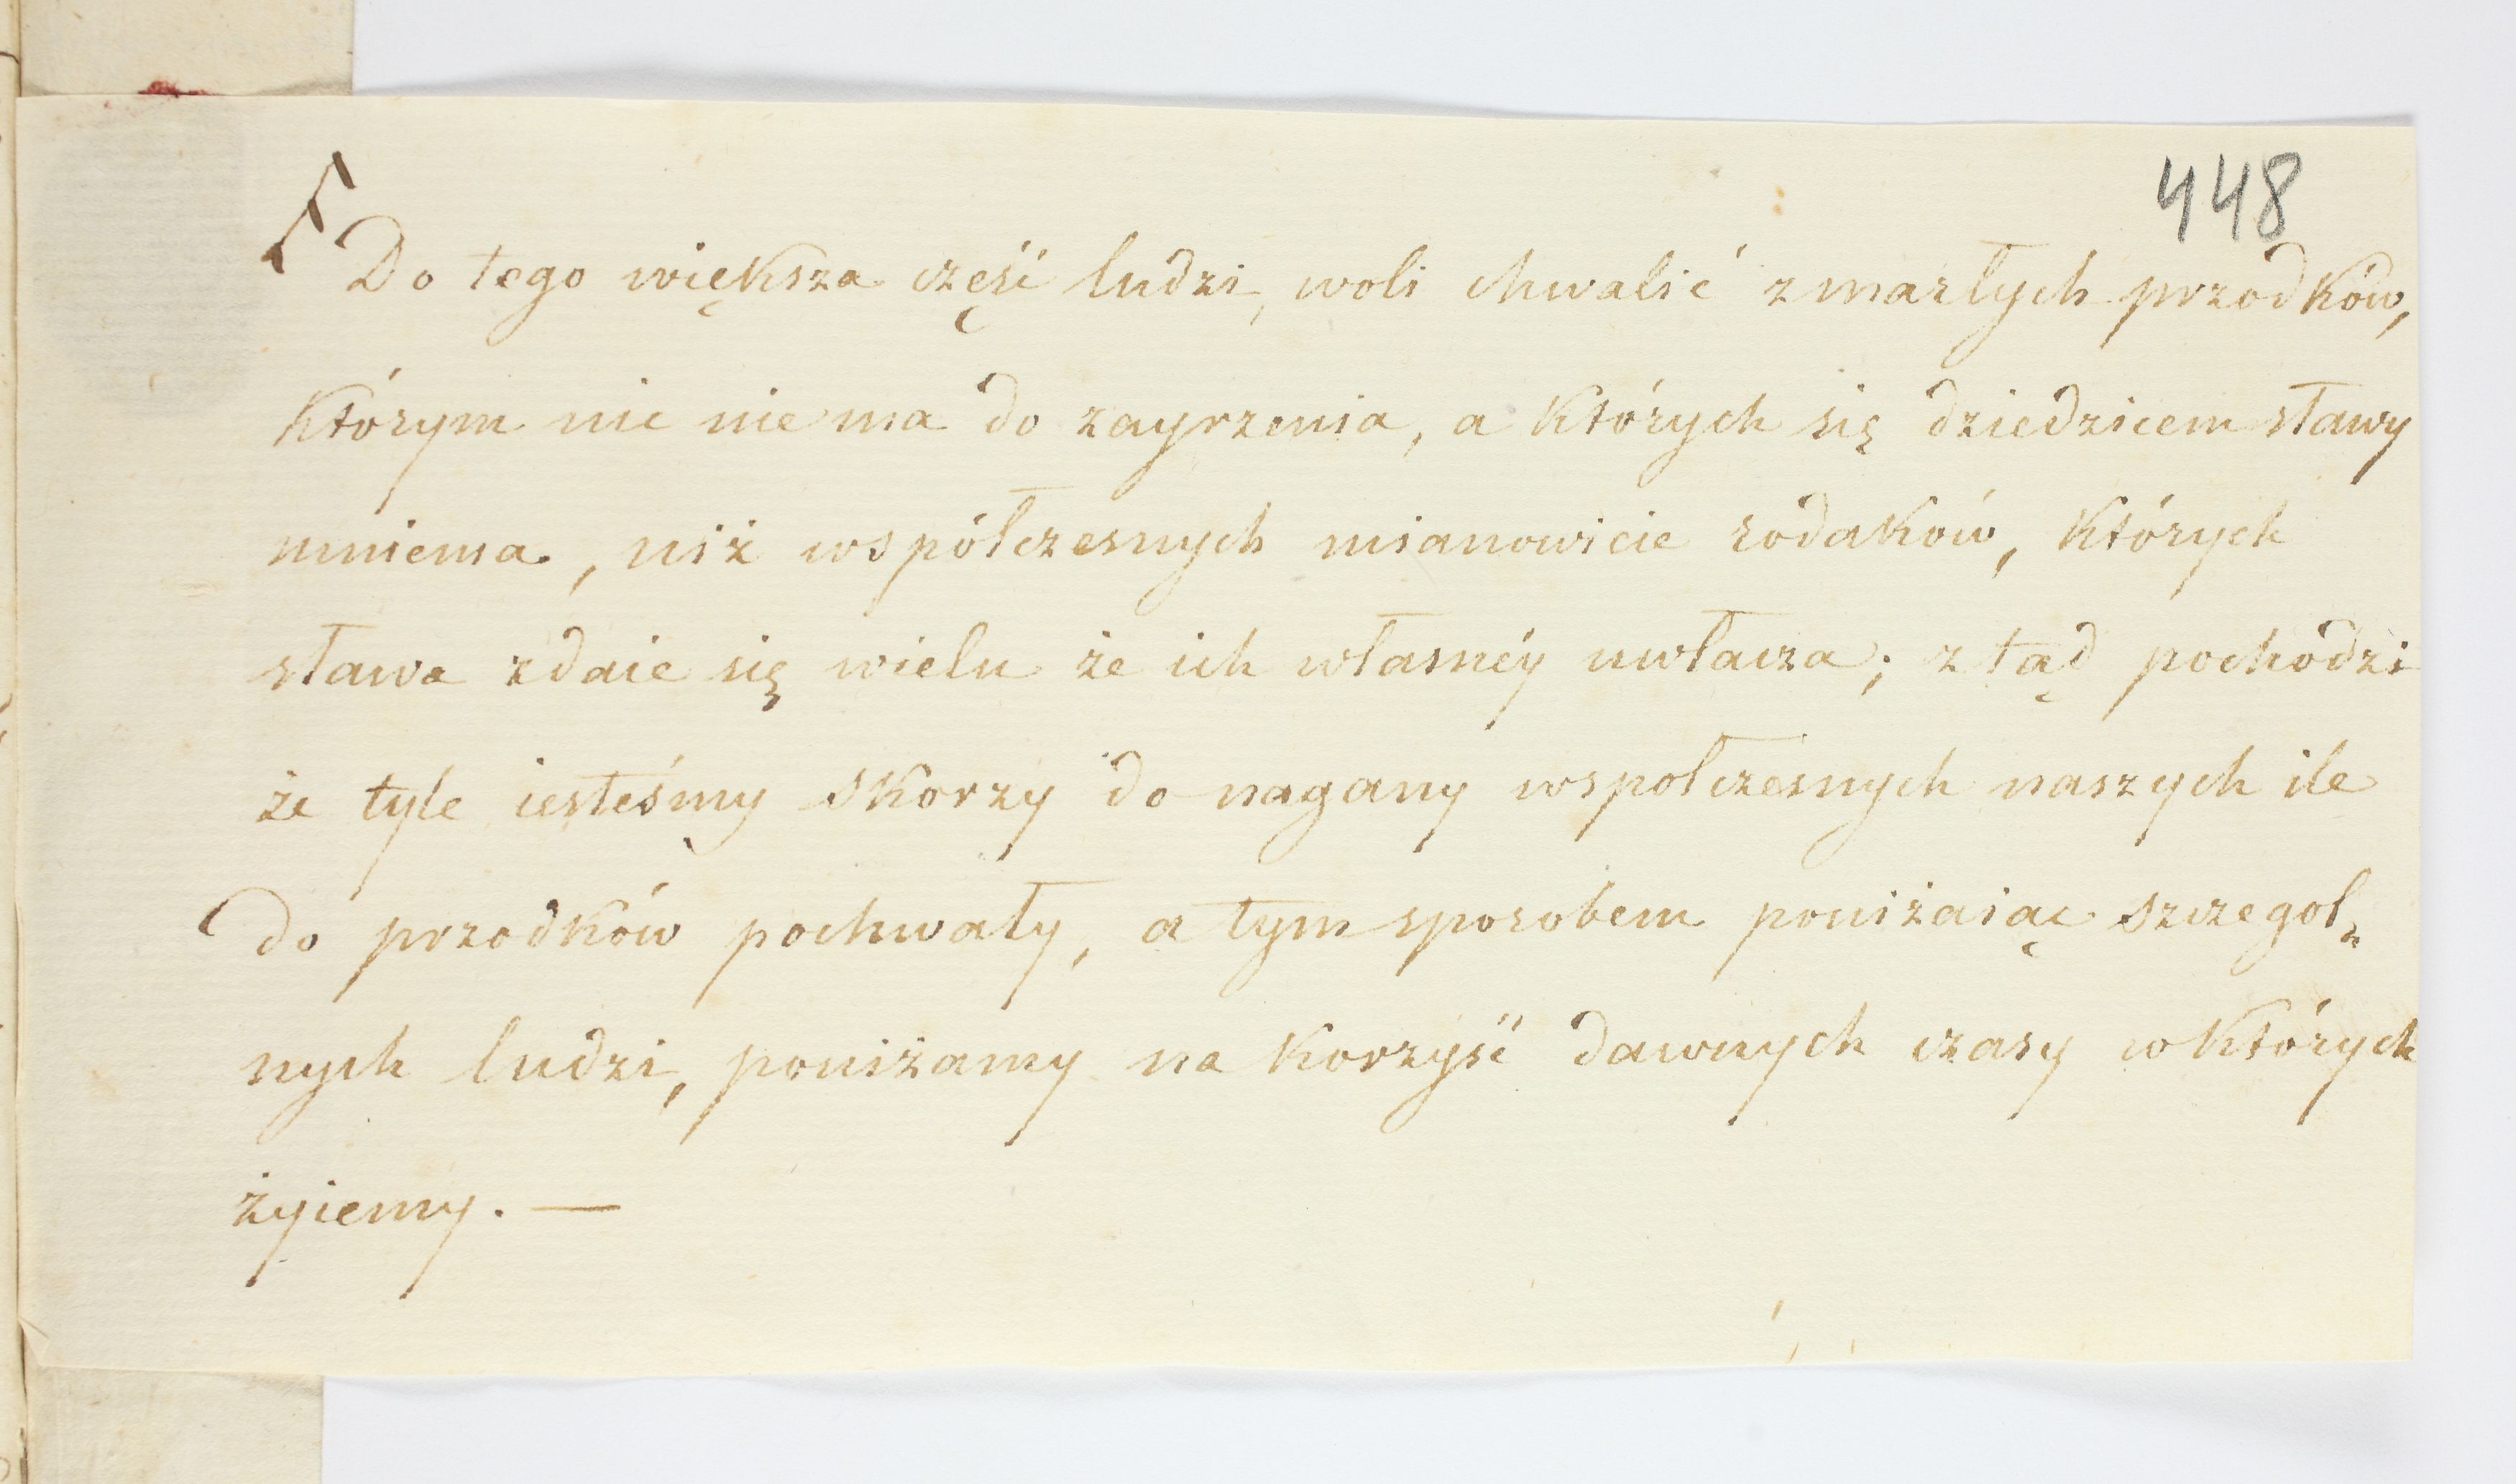 448
Do tego większa część ludzi, woli chwalić zmarłych przodków,
którym nic niema do zayrzenia, a których się dziedzicem sławy
mniema, niż współczesnych mianowicie rodaków, których
sława zdaie się wielu że ich własnéy uwłacza; ztąd pochodzi
że tyle iesteśmy skorzy do nagany wspołczesnych naszych ile
do przodków pochwały, a tym sposobem poniżaiąc szczegol„
nych ludzi, poniżamy na korzyść dawnych czasy w których
żyiemy. —